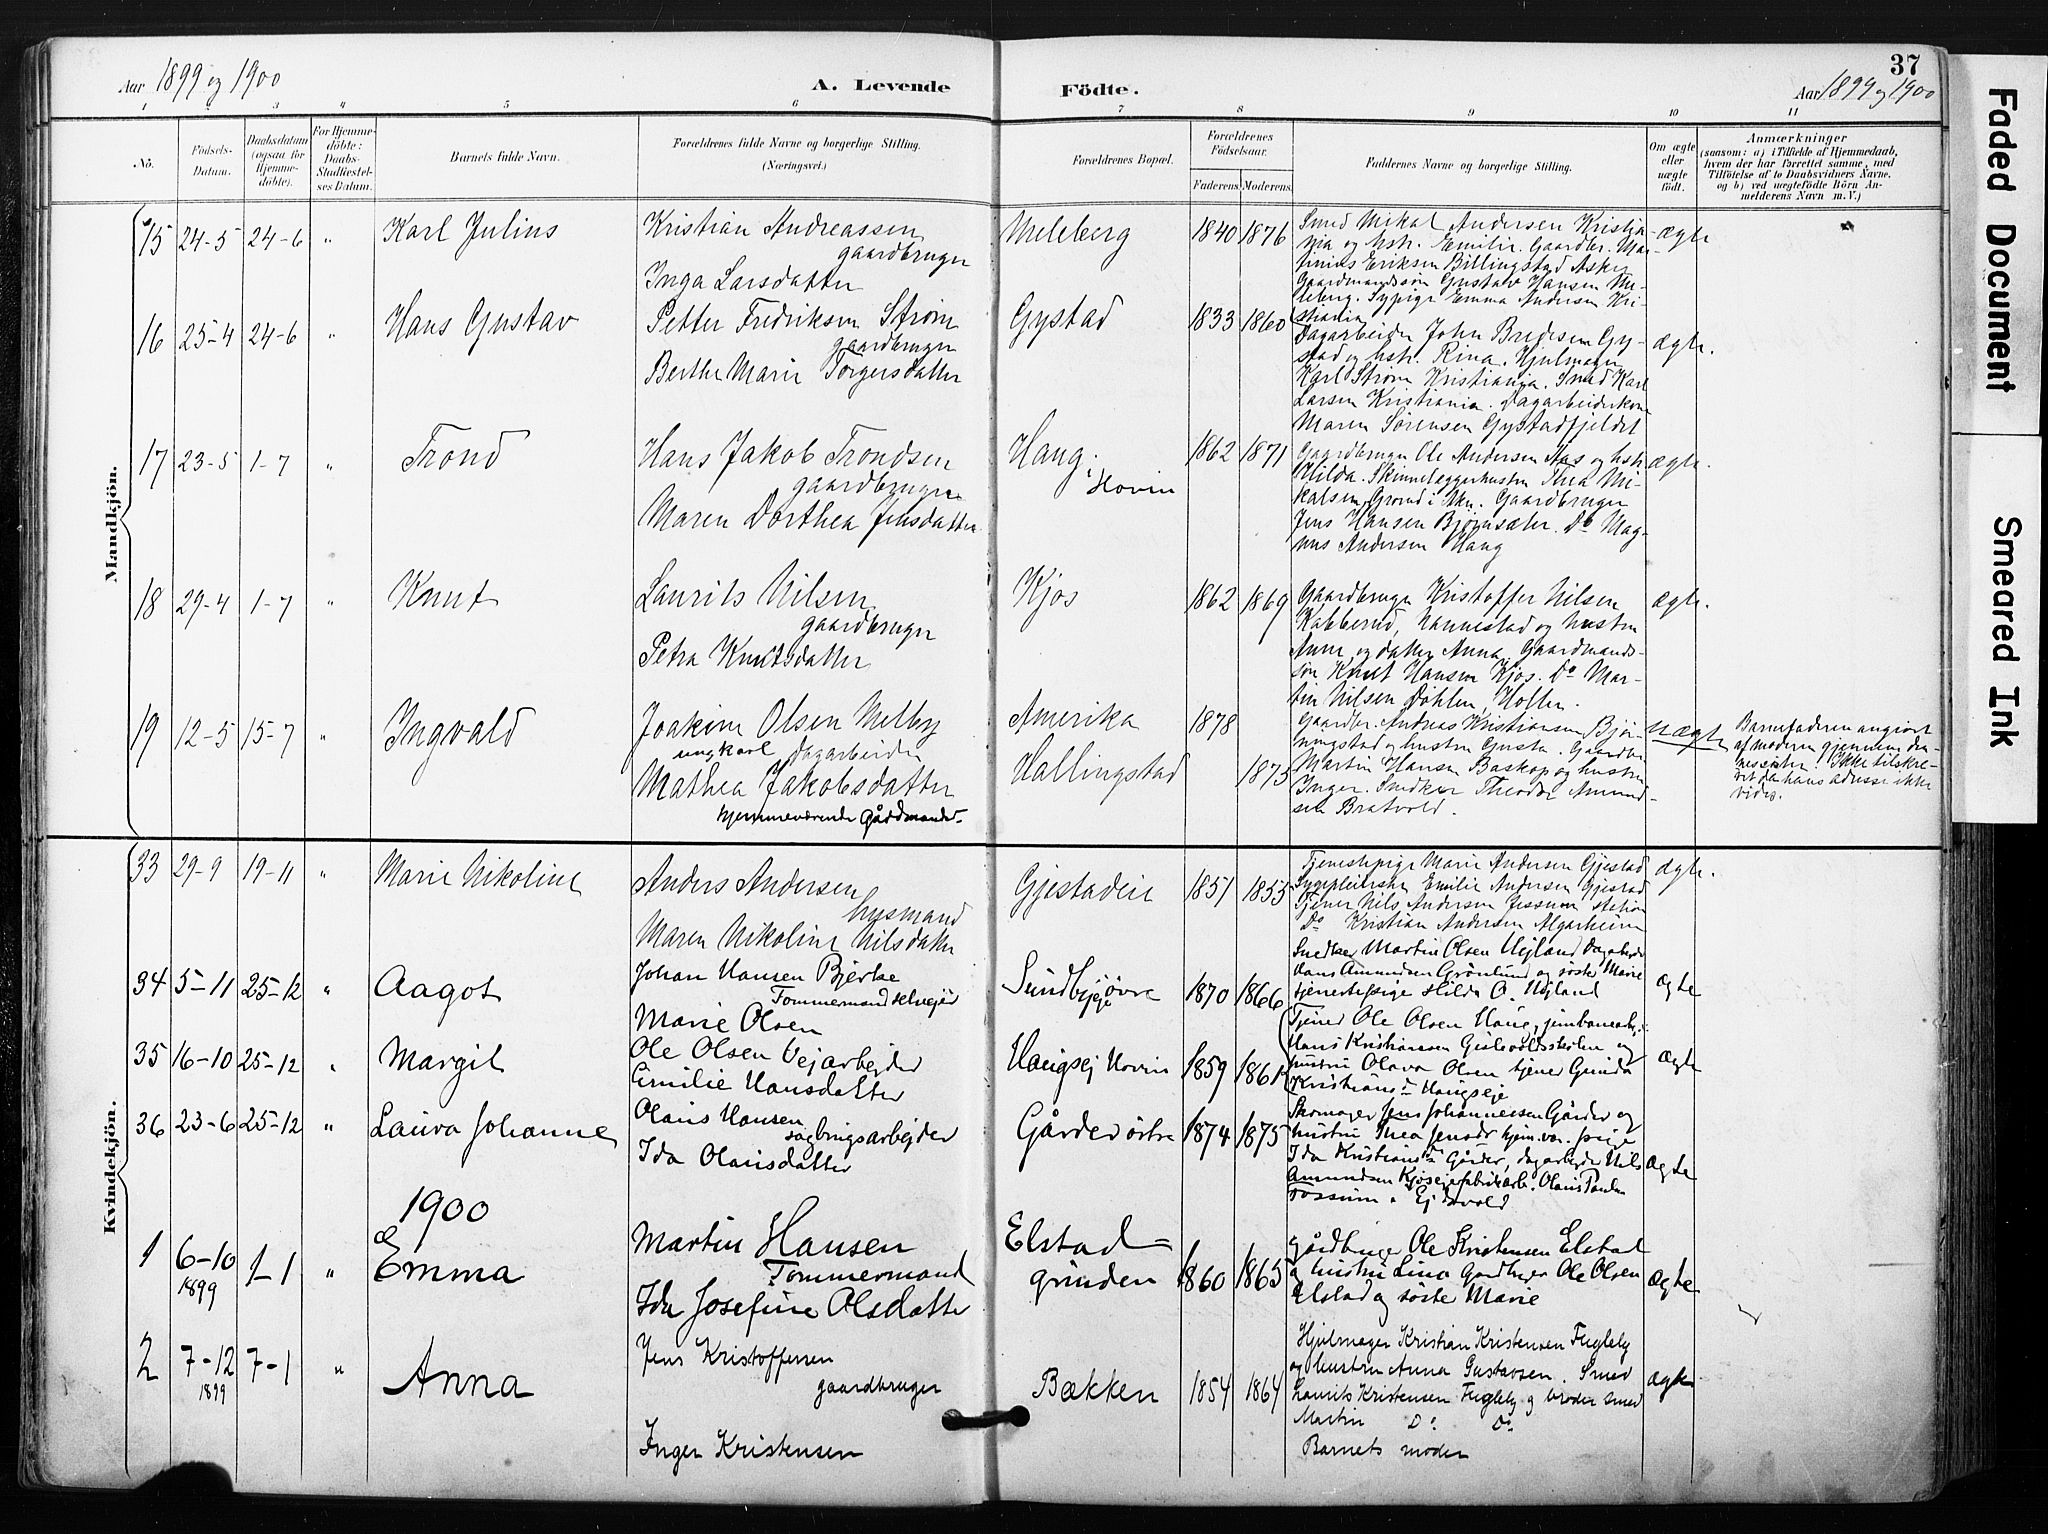 37
Aar 1899 og 1900
A. Levende Födte.
Aar 1899 og 1900
1 2 3 4 5 6 7 8 9 10 11
No.
Födsels-Datum.
Daabsdatum (ogsaa for Hjemme-döbte).
For Hjemme-döbte: Daabs-Stadfæstel-ses Datum.
Barnets fulde Navn.
Forældrenes fulde Navne og borgerlige Stilling. (Næringsvei.)
Forældrenes Bopæl.
Forældrenes Födselsaar.
Faderens. Moderens.
Faddernes Navne og borgerlige Stilling.
Om ægte eller uægte födt.
Anmærkninger
(saasom: a) i Tilfælde af Hjemmedaab, hvem der har forrettet samme, med Tilföielse af to Daabsvidners Navne, og b) ved uægtefödte Börn An-melderens Navn m. V.)
Mandkjön.
15 24-5 24-6 " Karl Julius
Kristian Andreassen
gaardbruger
Inga Larsdatter
Meleberg 1840 1876
Smed Mikal Andersen Kristia-
nia og hstr. Emilie. Gaardbr. Mar-
tinius Eriksen Billingstad Asker
Gaardmandssøn Gustav Hansen Me-
leberg. Sypige Emma Andersen Kri-
stiania
ægte
16 25-4 24-6 " Hans Gustav
Petter Fredriksen Strøm
gaardbruger
Berthe Marie Torgersdatter
Gystad 1833 1860
Dagarbeider John Bredesen Gy-
stad og hstr. Rina. Hjulmager
Karl Strøm Kristiania. Smed Karl
Larsen Kristiania. Dagarbeiderkone
Maren Sørensen Gystadfjeldet
ægte.
17 23-5 1-7 " Trond
Hans Jakob Trondsen
gaardbruger
Maren Dorthea Jensdatter
Haug, Hovin 1862 1871
Gaardbruger Ole Andersen Aas og hstr
Hilda. Skinnelæggerhustru Thea Mi-
kalsen, Grorud i Aker. Gaardbruger
Jens Hansen Bjørnsæter. Do Mag-
nus Andersen Haug
ægte.
18 29-4 1-7 " Knut
Laurits Nilsen
gaardbruger
Petra Knutsdatter
Kjos 1862 1869
Gaardbruger Kristoffer Nilsen
Kabberud, Nannestad og hustru
Anne og datter Anna, Gaardmands-
søn Knut Hansen Kjos. Do Mar-
tin Nilsen Døhlen, Holter.
ægte.
19 12-5 15-7 " Ingvald
Joakim Olsen Melby
ungkarl dagarbeider
Mathea Jakobsdatter
hjemmeværende Gårdmandsd.
Amerika 1878
Hallingstad 1875
Gaardbr. Andreas Kristiansen Bjør-
ningstad og hustru Gusta. Gaardbr
Martin Hansen Baskop og hustru
Inger. Snedker Theodor Amund-
sen Bratvold.
uægte
Barnefaderen angivet
af moderen gjennem
Ikke tilskre-
vet da hans adresse ikke
vides.
Kvindekjön.
33 29-9 19-11 " Marie Nikoline
Anders Andersen
husmand
Maren Nikoline Nilsdatter
Gjestadeie 1851 1855
Tjenestepige Marie Andersen Gjestad
Sygepleierske Emilie Andersen Gjestad
Tjener Nils Andersen Jessum station
Do Kristian Andersen Algarheim
ægte.
34 5-11 25-12 " Aagot
Johan Hansen Bjerke
Tømmermand selveier
Marie Olsen
Sundbyeje øvre 1870 1866
Snedker Martin Olsen Uejland Dagarbejder
Hans Amundsen Grønlund og søster Marie
tjenestepige Hilda O. Uejland
ægte
35 16-10 25-12 " Margit
Ole Olsen Vejarbejder
Emilie Hansdatter
Haugsej Hovin 1859 1861
Tjener Ole Olsen Haug, jernbanearb.
Hans Kristiansen Gislevoldsstedlen og
hustru Olava Olsen tjener Gunda
Kristiansdr Haugseje
ægte
36 23-6 25-12 " Laura Johanne
Olaus Hansen
sagbrugsarbejder
Ida Olausdatter
Gårder østre 1874 1875
Skomager Jens Johannessen Gårder og
hustru Thea Jensdr hjem.vær. pige
Ida Kristiansdr Gårder, dagarbejder Nils
Amundsen Kjoseje fabrikarb. Olaus Paulsen
Fossum, Ejdsvold
ægte
1900
1 6-10 1899 1-1 " Emma
Martin Hansen
Tømmermand
Ida Josefine Olsdatter
Elstad-
grunden 1860 1865
gårdbruger Ole Kristensen Elstad
og hustru Lina Gardbruger Ole Olsen
Elstad og søster Marie
ægte
2 7-12 1899 7-1 " Anna
Jens Kristoffersen
gaardbruger
Inger Kristensen
Bækken 1854 1864
Hjulmager Kristian Kristensen Fugleby
og hustru Anna Gustavsen. Smed
Laurits Kristensen Fugleby og broder smed
Martin Do Do
Barnets moder
ægte
Faded Document
Smeared Ink